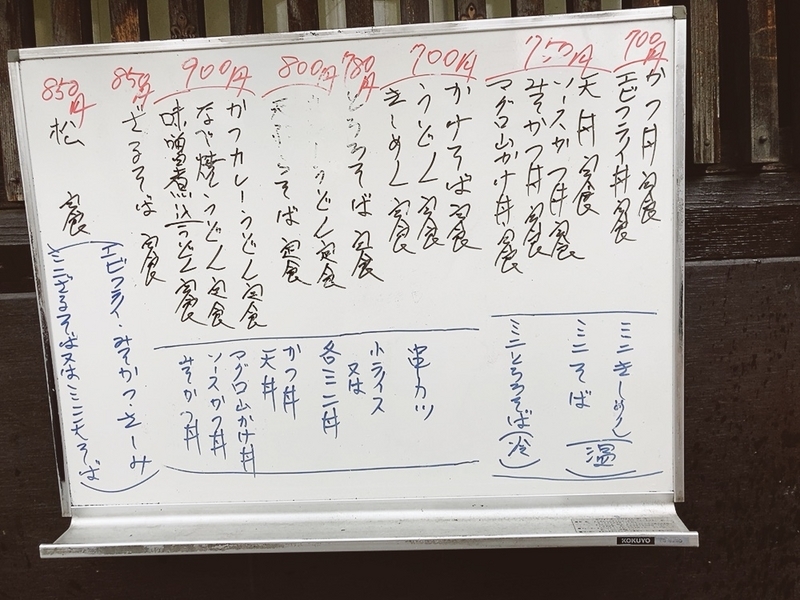 700円
かつ丼定食
エビフライ丼定食
750円
天丼定食
ソースかつ丼定食
みそかつ丼定食
マグロ山かけ丼定食
ミニきしめん
ミニそば
(温)
ミニとろろそば(冷)
700円
かけそば定食
うどん定食
きしめん定食
780円
とろろそば定食
800円
うどん定食
そば定食
900円
かつカレーうどん定食
なべ焼うどん定食
味噌煮込うどん定食
串カツ
小ライス
又は
各ミニ丼
かつ丼
天丼
マグロ山かけ丼
ソースかつ丼
みそかつ丼
850円
ざるそば定食
850円
松定食
(エビフライ・みそかつ・さしみ
ミニざるそば又はミニ天そば)
KOKUYO